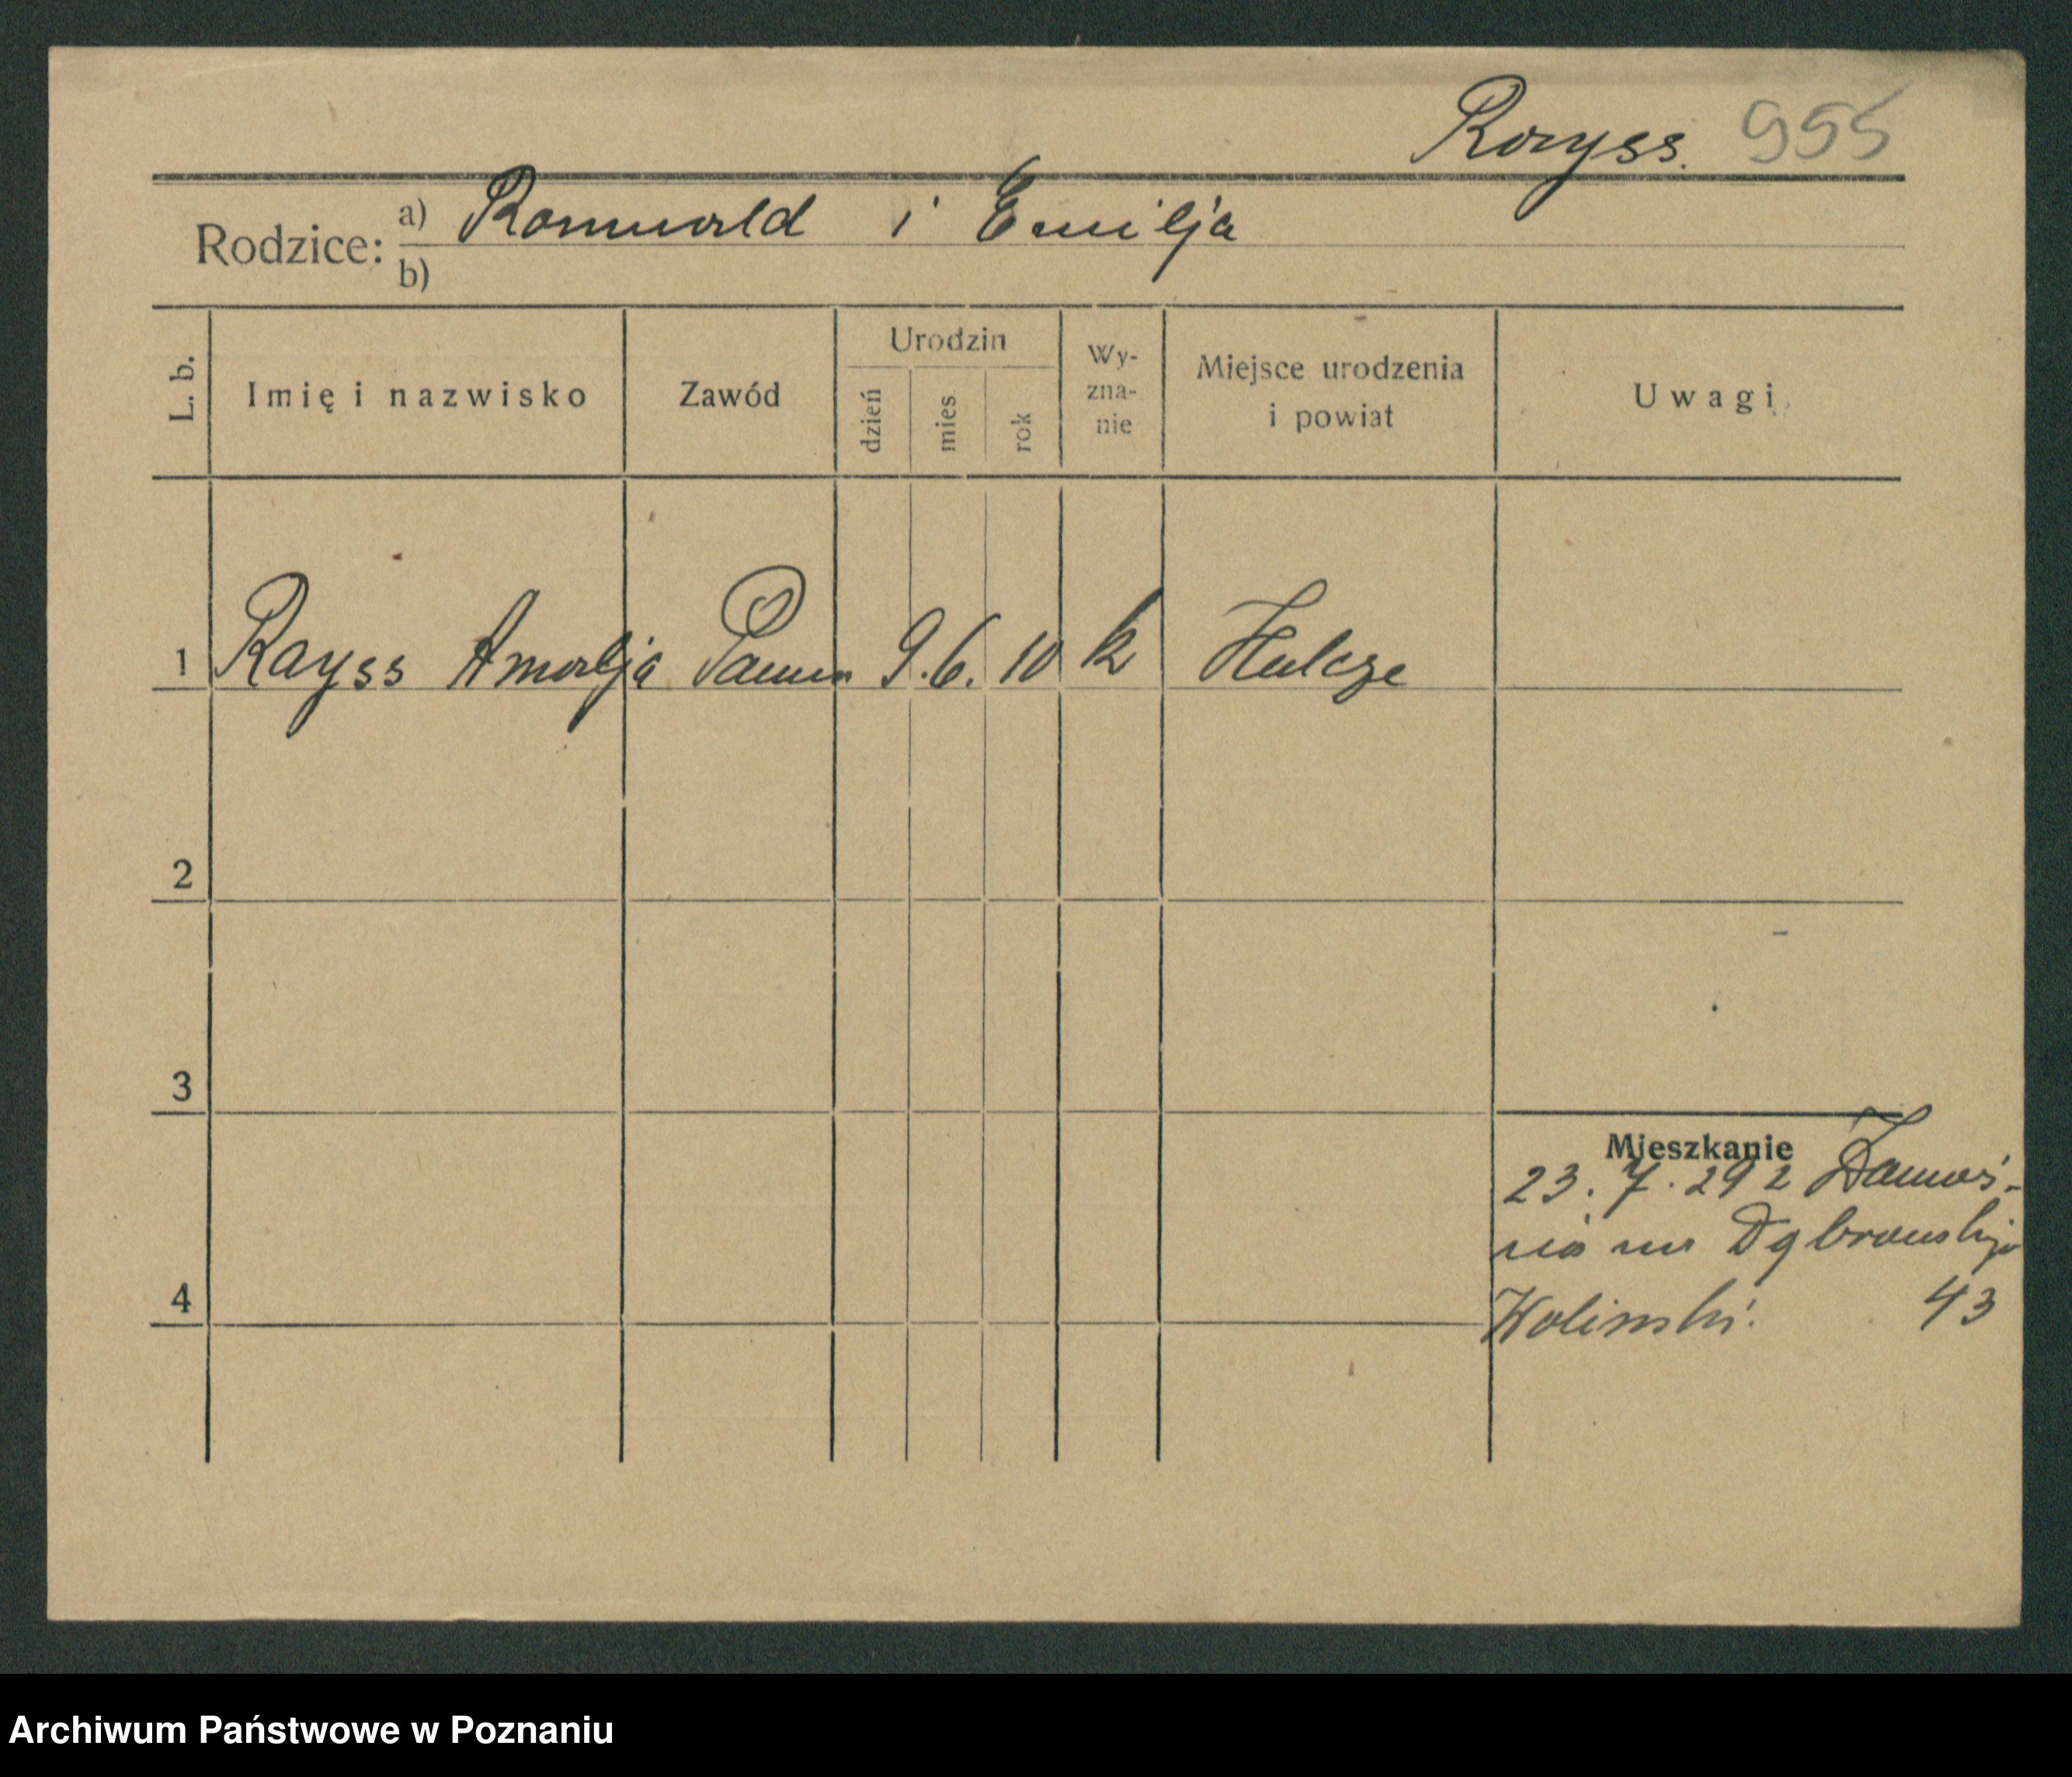 Rayss. 955
Rodzice: a) Romuald i Emilja
b)
L. b. Imię i nazwisko Zawód Urodzin dzień mies rok Wy-zna-nie Miejsce urodzenia i powiat Uwagi
1 Rayss Amalja Panna 9. 6. 10 k Hulcze
2
3
Mieszkanie
23. 7. 29 z Zamoś-
cia na Dąbrowskiego
4
Wolinski. 43
Archiwum Państwowe w Poznaniu